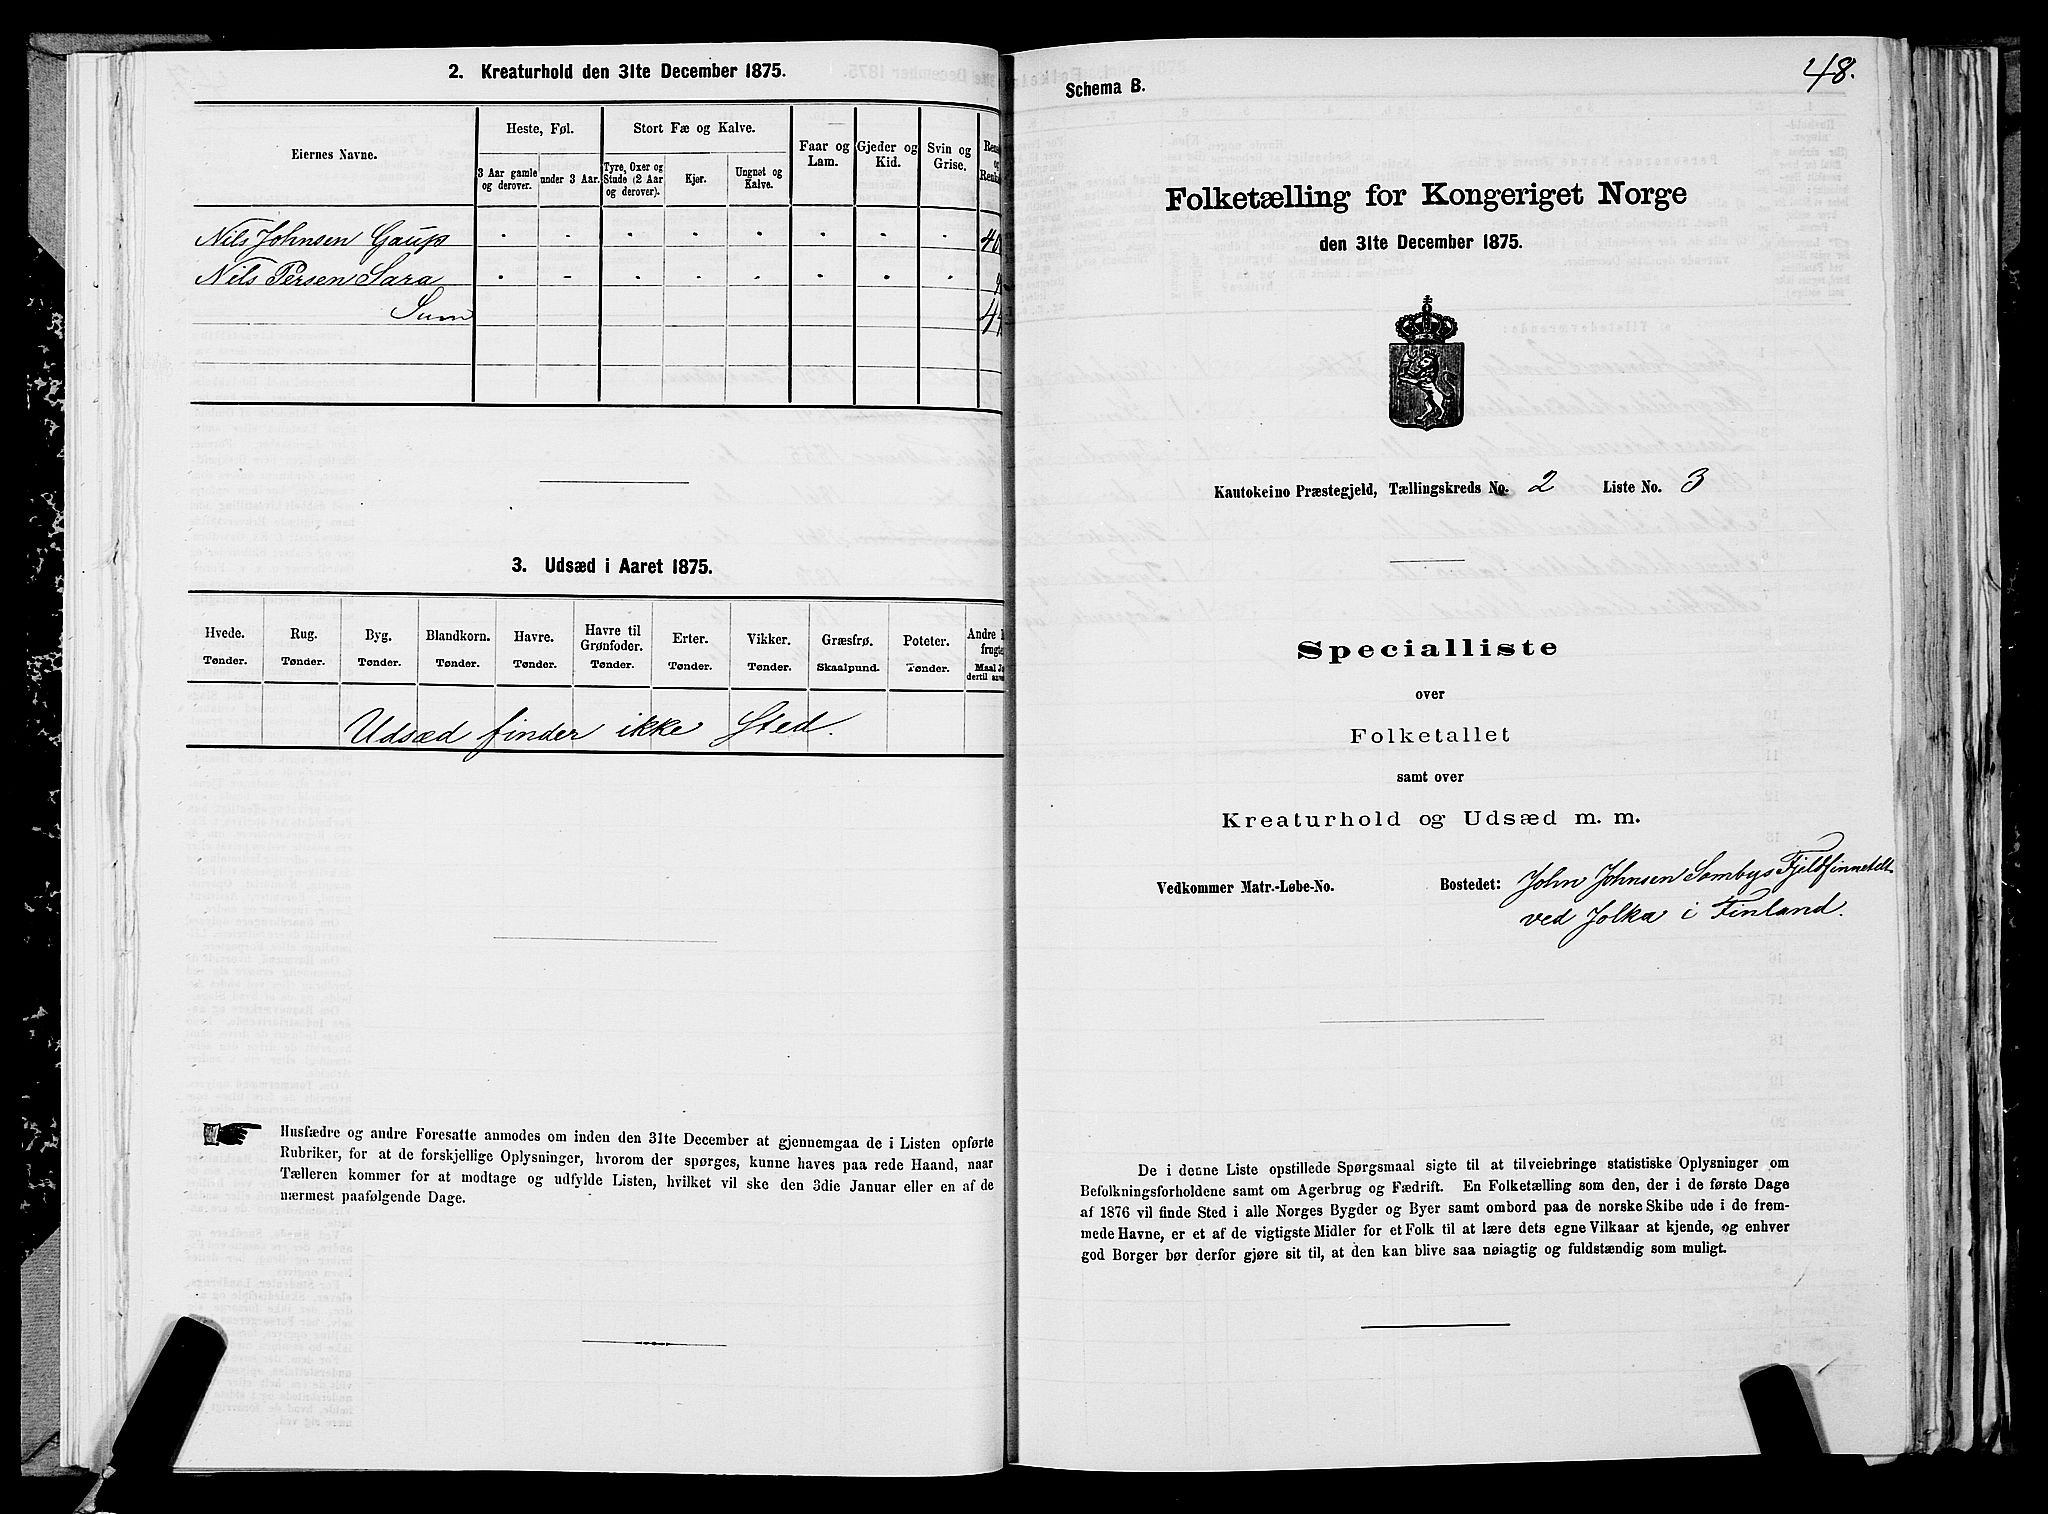 2. Kreaturhold den 31te December 1875.
Eiernes Navne.
Heste, Føl.
Stort Fæ og Kalve.
Faar og Lam.
Gjeder og Kid.
Svin og Grise.
3 Aar gamle og derover.
under 3 Aar.
Tyre, Oxer og Stude (2 Aar og derover).
Kjør.
Ungnet og Kalve.
Nils Johnsen Gaup
Nils Persen Sara
Sum
3. Udsæd i Aaret 1875.
Hvede. Rug. Byg. Blandkorn. Havre. Havre til Grønfoder. Erter. Vikker. Græsfrø. Poteter. Andre
Tønder. Tønder. Tønder. Tønder. Tønder. Tønder. Tønder. Tønder. Skaalpund. Tønder.
Udsæd finder ikke Sted.
Husfædre og andre Foresatte anmodes om inden den 31te December at gjennemgaa de i Listen opførte
Rubriker, for at de forskjellige Oplysninger, hvorom der spørges, kunne haves paa rede Haand, naar
Tælleren kommer for at modtage og udfylde Listen, hvilket vil ske den 3die Januar eller en af de
nærmest paafølgende Dage.
48.
Schema B.
Folketælling for Kongeriget Norge
den 31te December 1875.
Kautokeino Præstegjeld, Tællingskreds No. 2 Liste No. 3
Specialliste
over
Folketallet
samt over
Kreaturhold og Udsæd m. m.
Vedkommer Matr.-Løbe-No. Bostedet: John Johnsen Sombys Fjeldfinnetelt
ved Jolka i Finland.
De i denne Liste opstillede Spørgsmaal sigte til at tilveiebringe statistiske Oplysninger om
Befolkningsforholdene samt om Agerbrug og Fædrift. En Folketælling som den, der i de første Dage
af 1876 vil finde Sted i alle Norges Bygder og Byer samt ombord paa de norske Skibe ude i de frem-
mede Havne, er et af de vigtigste Midler for et Folk til at lære dets egne Vilkaar at kjende, og enhver
god Borger bør derfor gjøre sit til, at den kan blive saa nøiagtig og fuldstændig som muligt.